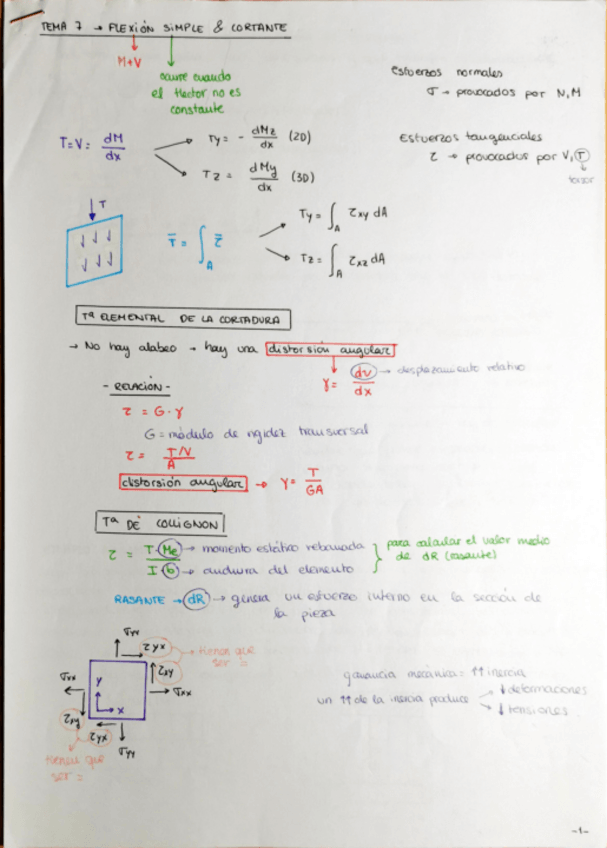 TEMA 7 → FLEXIÓN SIMPLE & CORTANTE
M+V
ocurre cuando
el flector no es
constante
esfuerzos normales
σ → provocados por N, M
T=V= dM/dx
Ty = - dMz/dx (2D)
Tz = dMy/dx (3D)
esfuerzos tangenciales
τ → provocados por V, T
torsor
T
T̄ = ∫A τ̄
Ty = ∫A τxy dA
Tz = ∫A τxz dA
Tª ELEMENTAL DE LA CORTADURA
→ No hay alabeo → hay una distorsión angular
γ = dv/dx → desplazamiento relativo
- RELACIÓN -
τ = G·γ
G = módulo de rigidez transversal
τ = T/V/A
distorsión angular → γ = T/GA
Tª DE COLLIGNON
τ = T·Me/I·b
Me → momento estático rebanada
b → anchura del elemento
para calcular el valor medio
de dR (rasante)
RASANTE → dR → genera un esfuerzo interno en la sección de
la pieza
σyy
τyx → tienen que
ser =
τxy
σxx
y
x
σxx
τxy
τyx
σyy
tienen que
ser =
ganancia mecánica = ↑↑ inercia
un ↑↑ de la inercia produce
↓ deformaciones
↓ tensiones
-1-